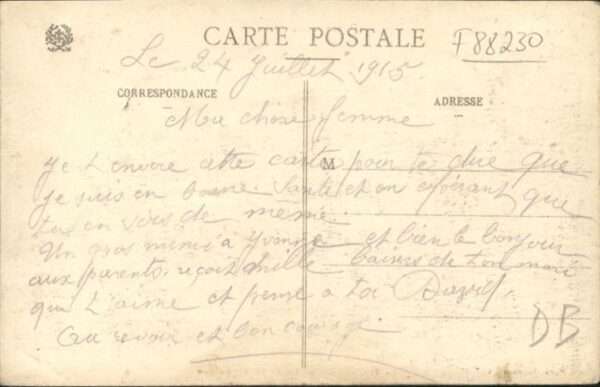 CARTE POSTALE
F88230
Le 24 Juillet 1915
CORRESPONDANCE
ADRESSE
Ma chère femme
M
Je t'envoie cette carte pour te dire que
je suis en bonne Santé et en espérant que
toi en sois de même.
Un gros mimi à Yvonne et bien le bonjour
aux parents. reçoit mille baisers de ton mari
qui t'aime et pense a toi David.
Au revoir et bon courage
DB